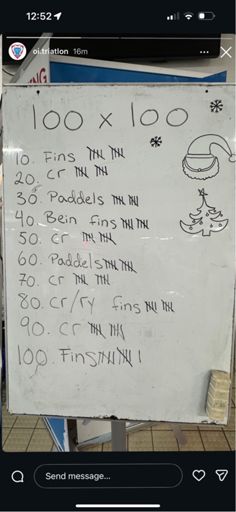 12:52
oi.triatlon 16m
100 x 100
10. Fins
20. Cr
30. Paddels
40. Bein fins
50. Cr
60. Paddels
70. Cr
80. Cr/ry fins
90. Cr
100. Fins
Send message...